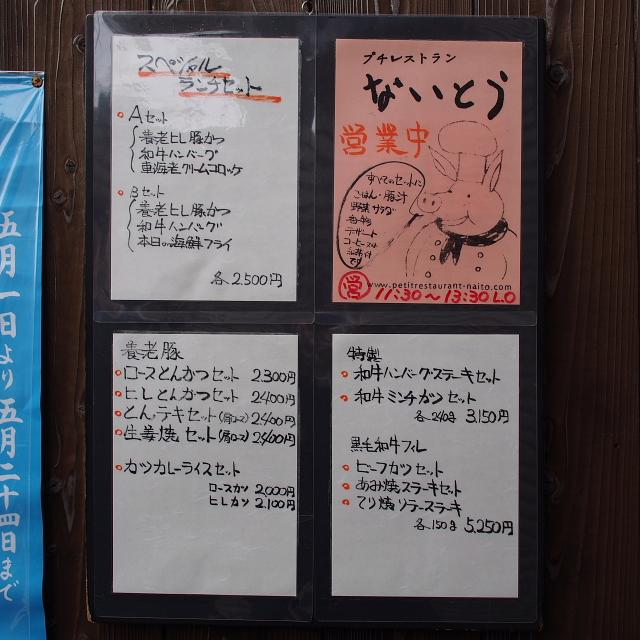 スペシャル
ランチセット
Aセット
養老ヒレ豚かつ
和牛ハンバーグ
車海老クリームコロッケ
Bセット
養老ヒレ豚かつ
和牛ハンバーグ
本日の海鮮フライ
各2,500円
プチレストラン
ないとう
営業中
すべてのセットに
ごはん・豚汁
野菜サラダ
香の物
デザート
コーヒー又は
です
www.petitrestaurant-naito.com
営 11:30～13:30 L.O
養老豚
ロースとんかつセット 2,300円
ヒレとんかつセット 2,400円
とんテキセット(肩ロース) 2,400円
生姜焼セット(肩ロース) 2,400円
カツカレーライスセット
ロースカツ 2,000円
ヒレカツ 2,100円
特製
和牛ハンバーグ・ステーキセット
和牛ミンチカツセット
各240g 3,150円
黒毛和牛フィレ
ビーフカツセット
あみ焼ステーキセット
てり焼ソテーステーキ
各150g 5,250円
五月一日より五月二十四日まで